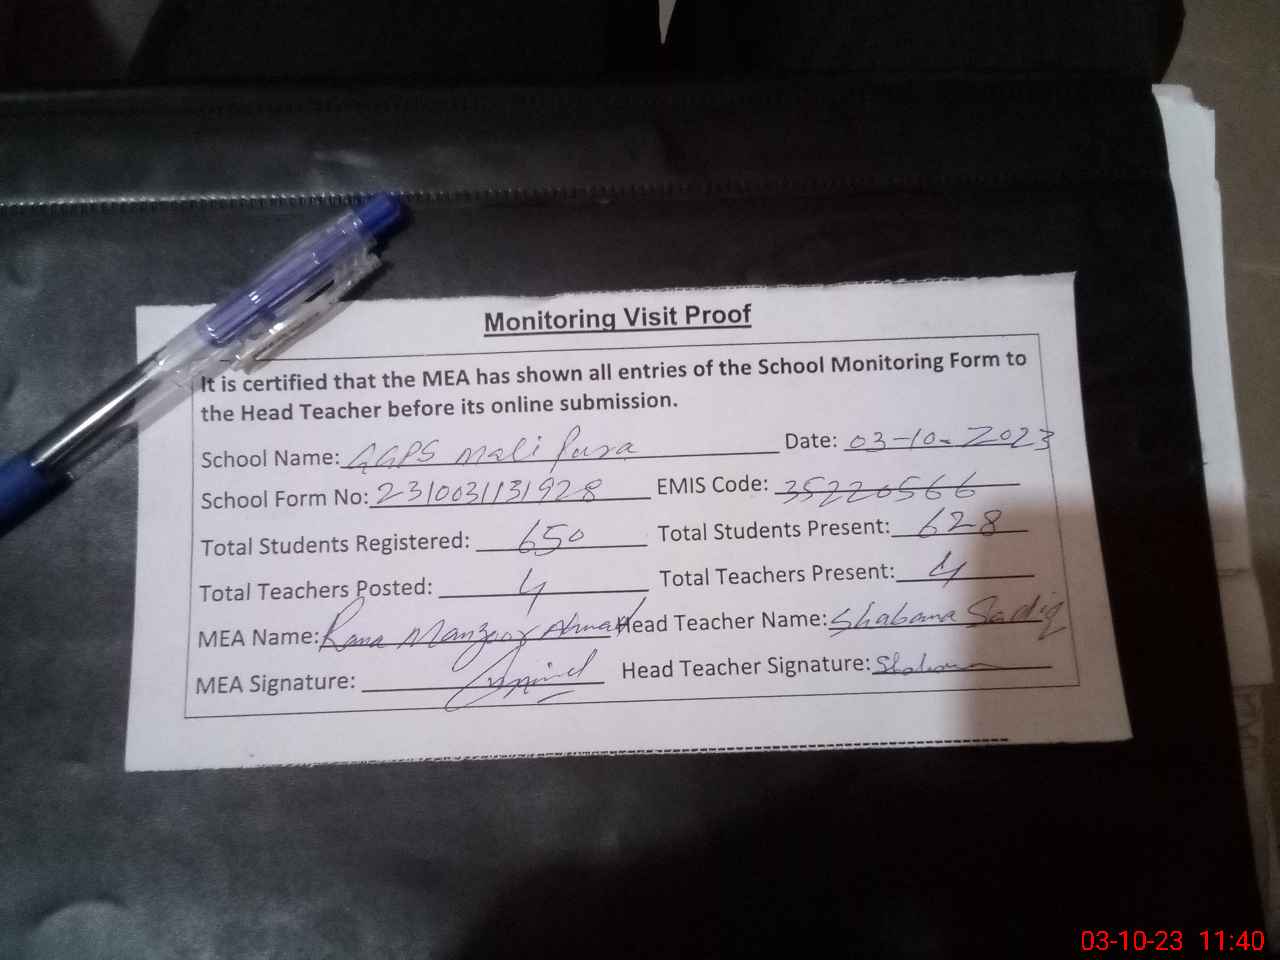 Monitoring Visit Proof
It is certified that the MEA has shown all entries of the School Monitoring Form to
the Head Teacher before its online submission.
School Name: GGPS Mali Pura Date: 03-10-2023
School Form No: 2310031131928 EMIS Code: 35220566
Total Students Registered: 650 Total Students Present: 628
Total Teachers Posted: 4 Total Teachers Present: 4
MEA Name: Rana Manzoor Ahmad Head Teacher Name: Shabana Sadiq
MEA Signature: Head Teacher Signature: Shabana
03-10-23 11:40